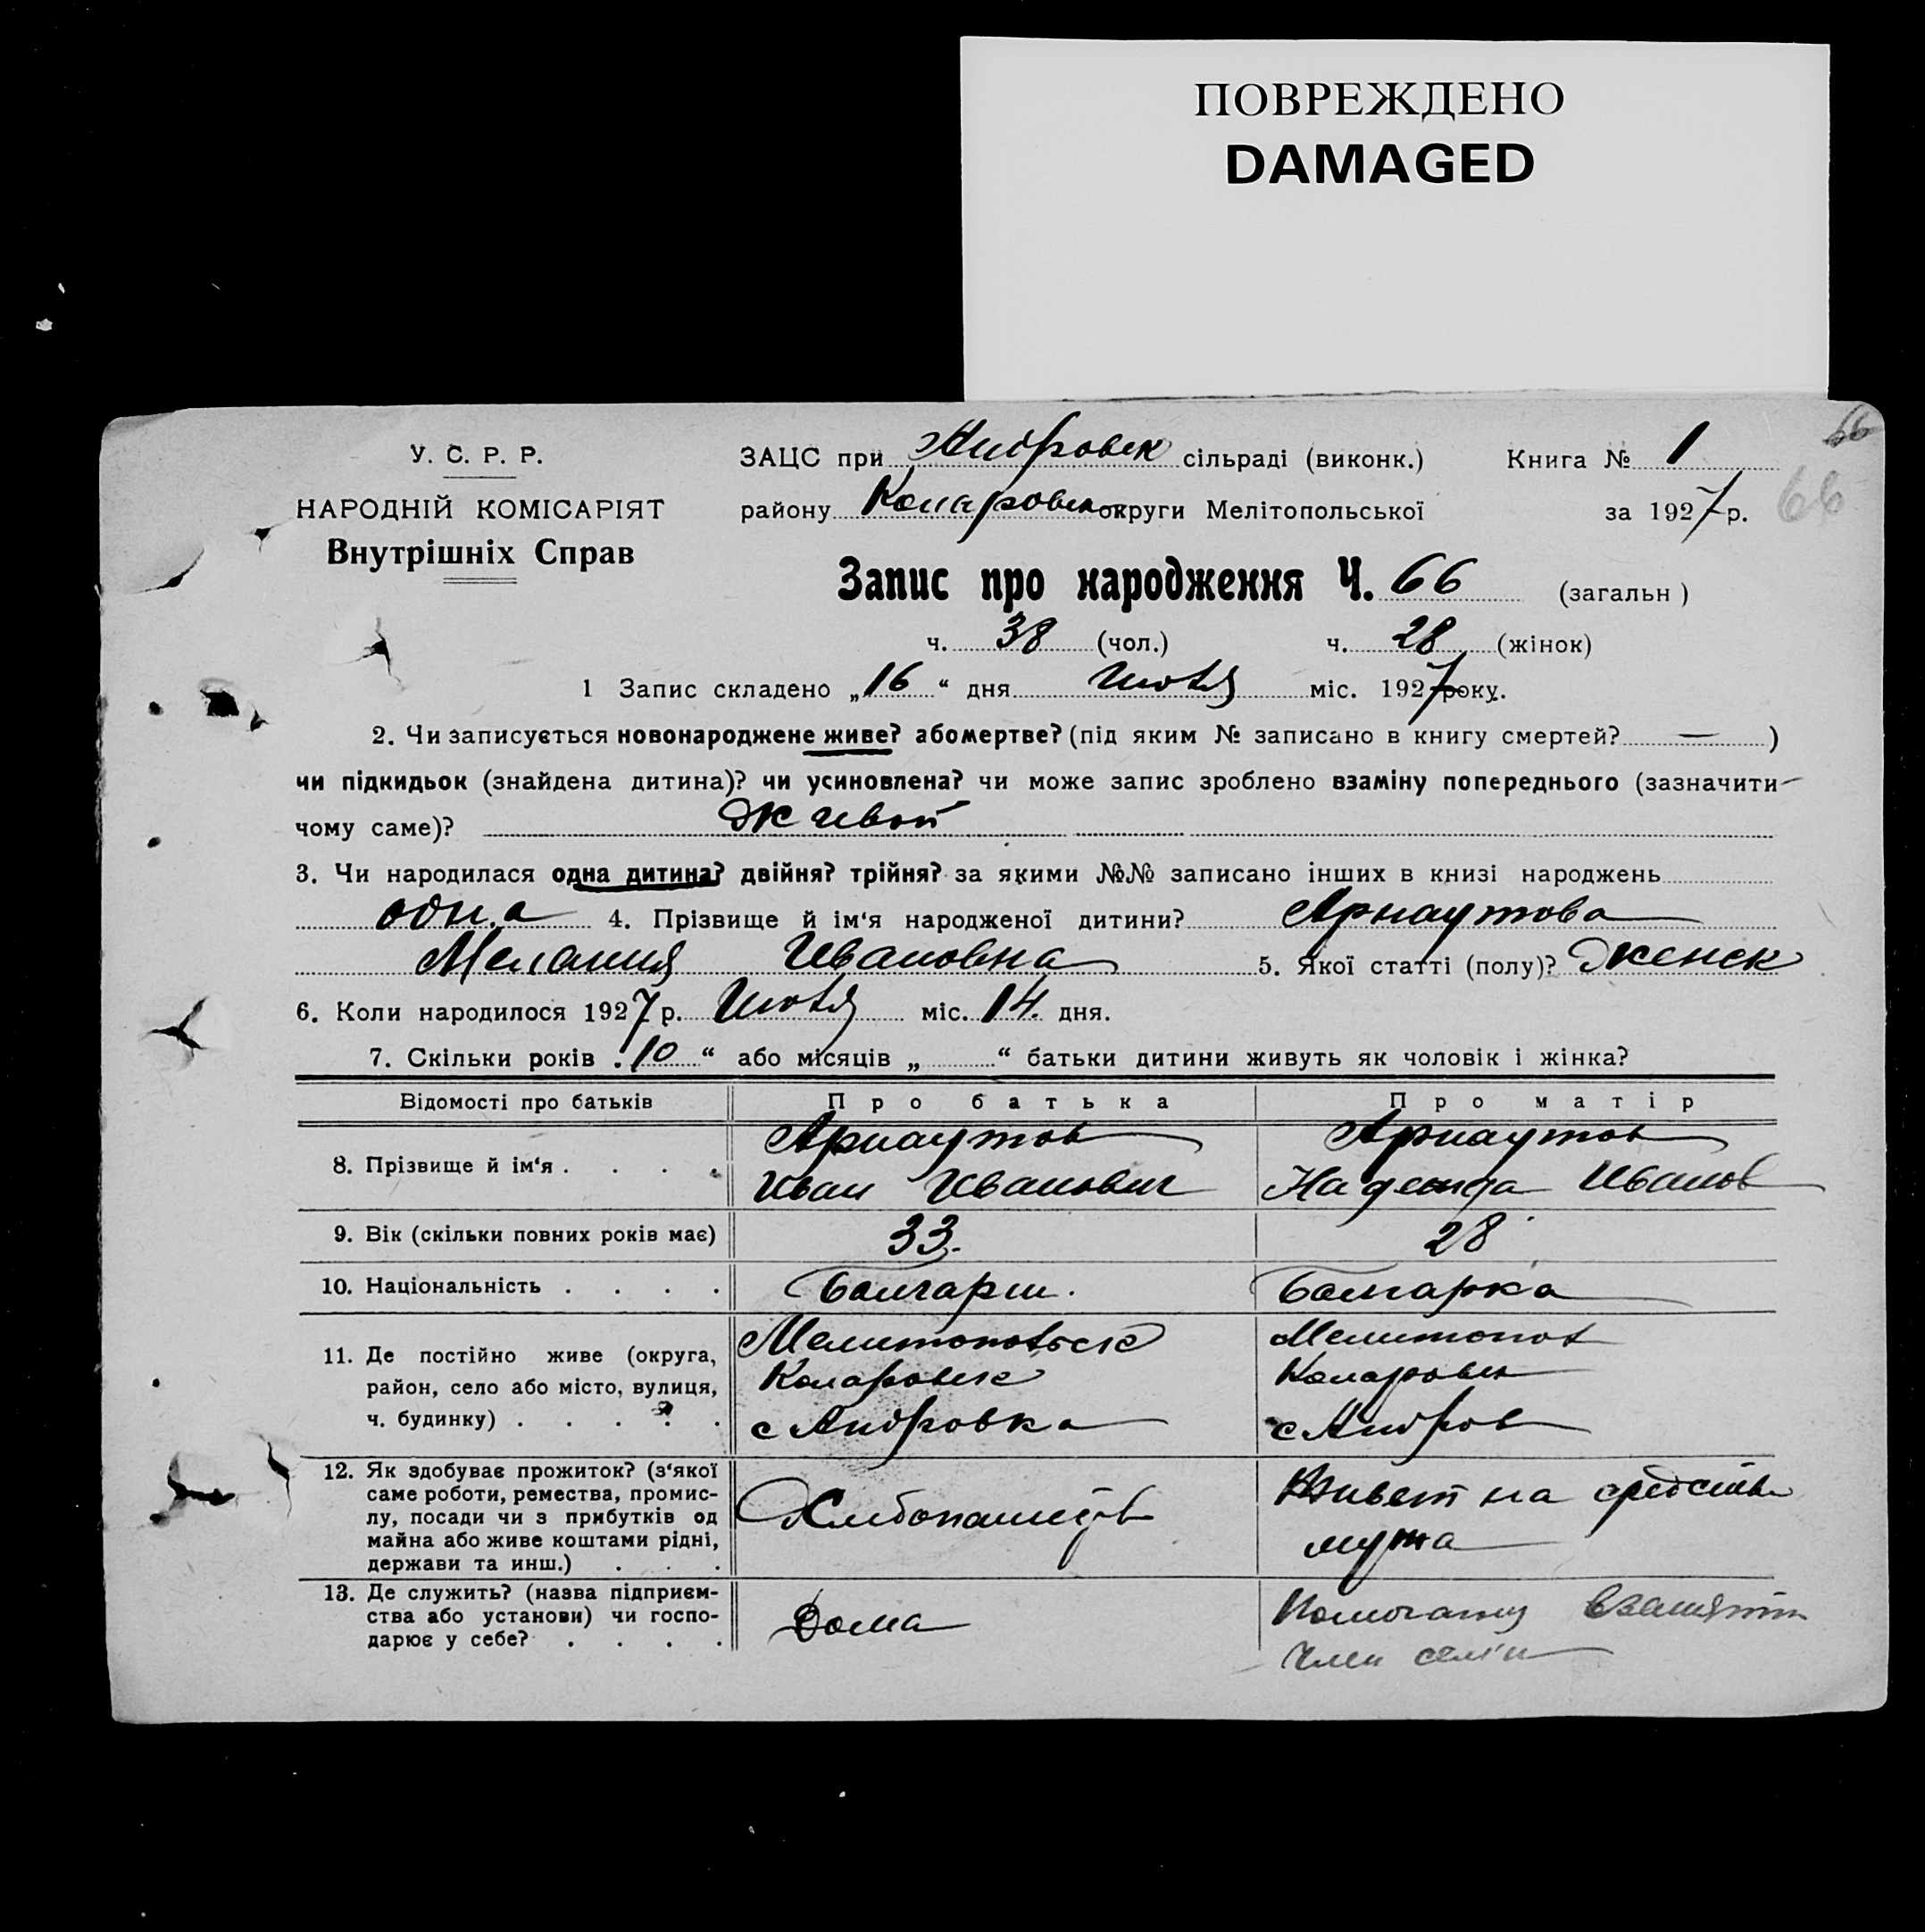 ПОВРЕЖДЕНО
DAMAGED
66
У. С. Р. Р.
НАРОДНІЙ КОМІСАРІЯТ
Внутрішніх Справ
ЗАЦС при Андровск сільраді (виконк.) Книга № 1
району Коларовск округи Мелітопольської за 1927 р. 66
Запис про народження Ч. 66 (загальн )
ч. 38 (чол.) ч. 28 (жінок)
1 Запис складено „16“ дня Июля міс. 1927 року.
2. Чи записується новонароджене живе? або мертве? (під яким № записано в книгу смертей? — )
чи підкидьок (знайдена дитина)? чи усиновлена? чи може запис зроблено взаміну попереднього (зазначити
чому саме)? Живой
3. Чи народилася одна дитина? двійня? трійня? за якими №№ записано інших в книзі народжень
одна 4. Прізвище й ім‘я народженої дитини? Арнаутова
Мелания Ивановна 5. Якої статті (полу)? Женск
6. Коли народилося 1927 р. Июля міс. 14. дня.
7. Скільки років „10“ або місяців „ “ батьки дитини живуть як чоловік і жінка?
Відомості про батьків Про батька Про матір
8. Прізвище й ім‘я . . . . Арнаутов Арнаутов
Иван Иванович Надежда Иванов
9. Вік (скільки повних років має) 33. 28
10. Національність . . . . Болгарин. Болгарка
11. Де постійно живе (округа, Мелитопольск Мелитопол
район, село або місто, вулиця, Коларовск Коларовск
ч. будинку) . . . . . с Андровка с Андров
12. Як здобуває прожиток? (з‘якої
саме роботи, ремества, промис-
лу, посади чи з прибутків од
майна або живе коштами рідні,
держави та инш.) . . .
Хлебопашеств
Живет на средства
мужа
13. Де служить? (назва підприєм-
ства або установи) чи госпо-
дарює у себе? . . . .
Дома
Член семьи